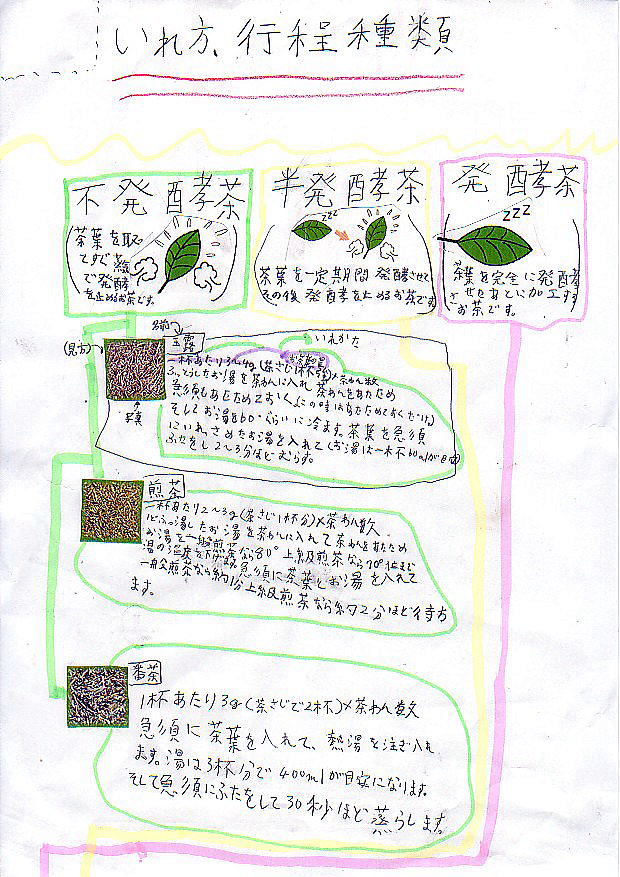 いれ方、行程種類
不発酵茶
茶葉を取っ
てすぐ蒸
で発酵
を止めるお茶です。
半発酵茶
zzz
茶葉を一定期間発酵させて、
その後発酵を止めるお茶です
発酵茶
zzz
茶葉を完全に発酵
させたあとに加工する
お茶です。
名前
(見方)
玉露
いれかた
お茶の量
一杯あたり3~4g(茶さじ1杯強)×茶わん数
ふっとうしたお湯を茶わんに入れ茶わんをあたため
急須もあたためておく(この時はあたためておくだけ)
そしてお湯を60°くらいに冷ます。茶葉を急須
にいれ、さめたお湯を入れて(お湯は一杯60mlが目安)
ふたをし2~3分ほどむらす。
写真
煎茶
一杯あたり2~3g(茶さじ1杯分)×茶わん数
ふっ湯したお湯を茶わんに入れて茶わんをあたため
お湯を一般煎茶なら80°上級煎茶なら70°位まで
湯の温度を下げ急須に茶葉とお湯を入れて
一般煎茶なら約1分上級煎茶なら約2分ほど待ち
ます。
番茶
1杯あたり3g(茶さじで2杯)×茶わん数
急須に茶葉を入れて、熱湯を注ぎ入れ
ます。湯は3杯分で400mlが目安になります。
そして急須にふたをして30秒ほど蒸らします。